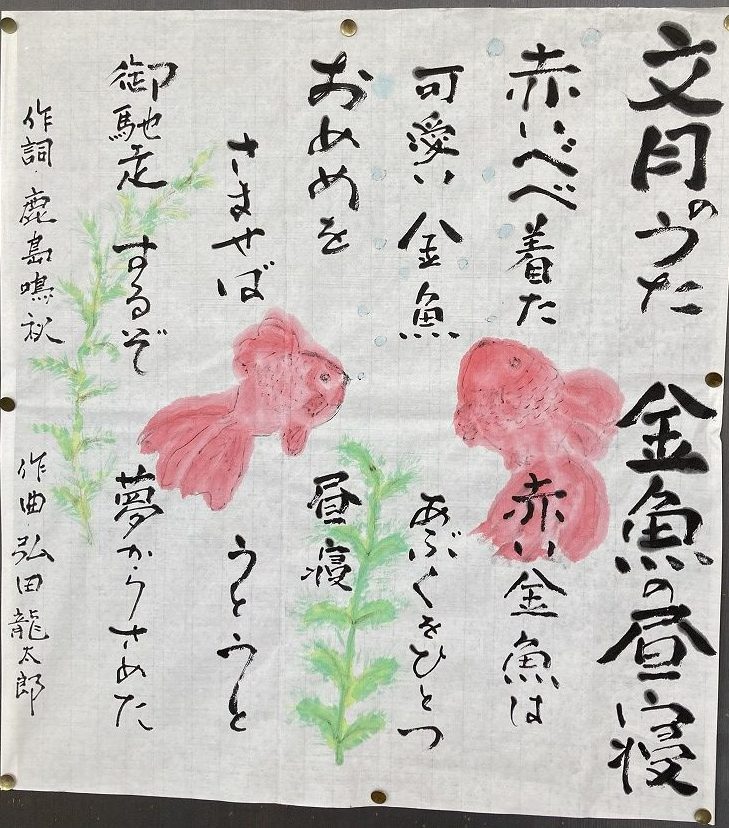 文月のうた　金魚の昼寝
赤いべべ着た
可愛い金魚
おめめを
さませば
御馳走するぞ
赤い金魚は
あぶくをひとつ
昼寝
うとうと
夢からさめた
作詞・鹿島鳴秋　作曲・弘田龍太郎